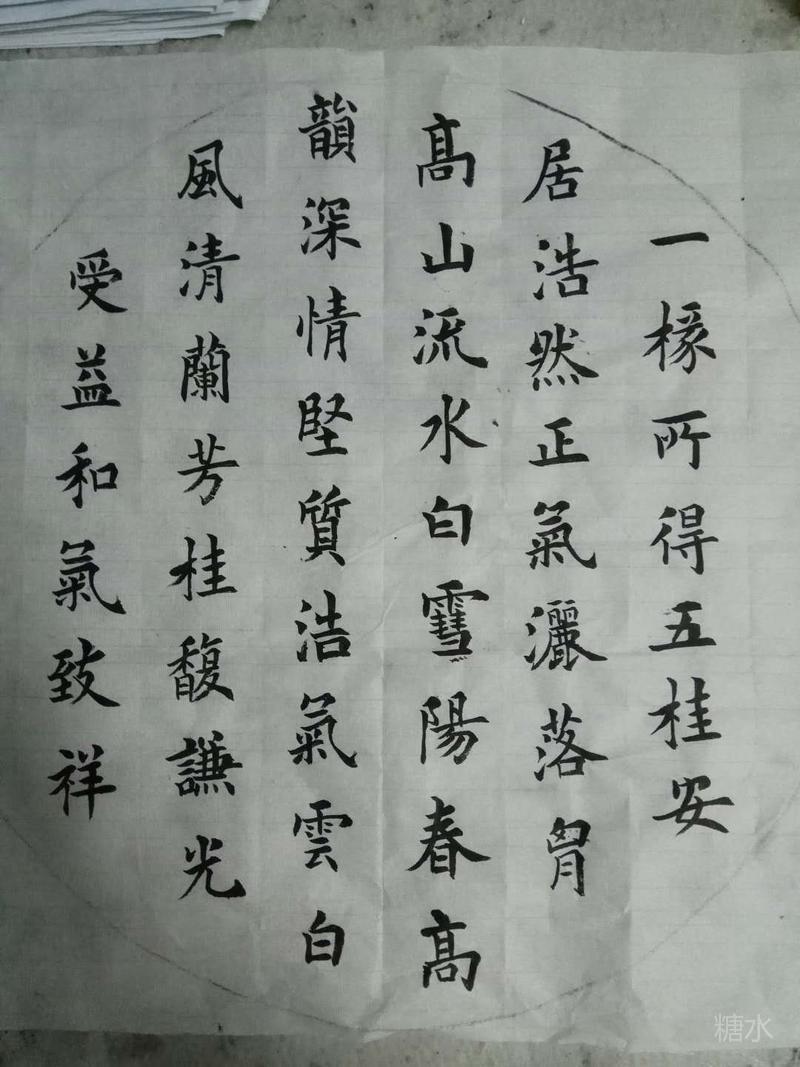 一椽所得五桂安
居浩然正氣灑落胷
高山流水白雪陽春高
韻深情堅質浩氣雲白
風清蘭芳桂馥謙光
受益和氣致祥
糖水